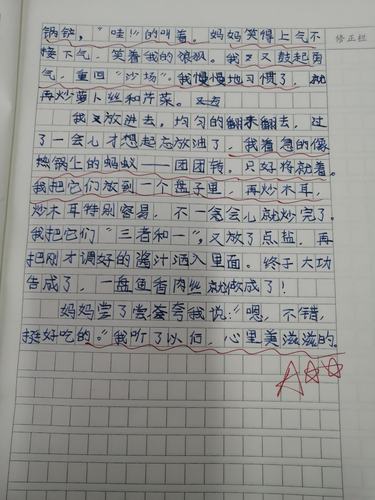 锅铲,"哇!!的叫着。妈妈笑得上气不
修正栏
接下气,笑着我的狼狈。我又又鼓起勇
气,重回"沙场"。我慢慢地习惯了,就
再炒萝卜丝和芹菜。又去
我又放进去,均匀的翻来翻去,过
了一会儿才想起忘放油了,我着急的像
热锅上的蚂蚁——团团转。只好将就着。
我把它们放到一个盘子里,再炒木耳,
炒木耳特别容易,不一会会儿就炒完了。
我把它们"三者和一",又放了点盐,再
把刚才调好的酱汁洒入里面。终于大功
告成了,一盘鱼香肉丝就做成了!
妈妈尝了尝夸夸我说:"嗯,不错,
挺好吃的。"我听了以后,心里美滋滋的。
A☆☆